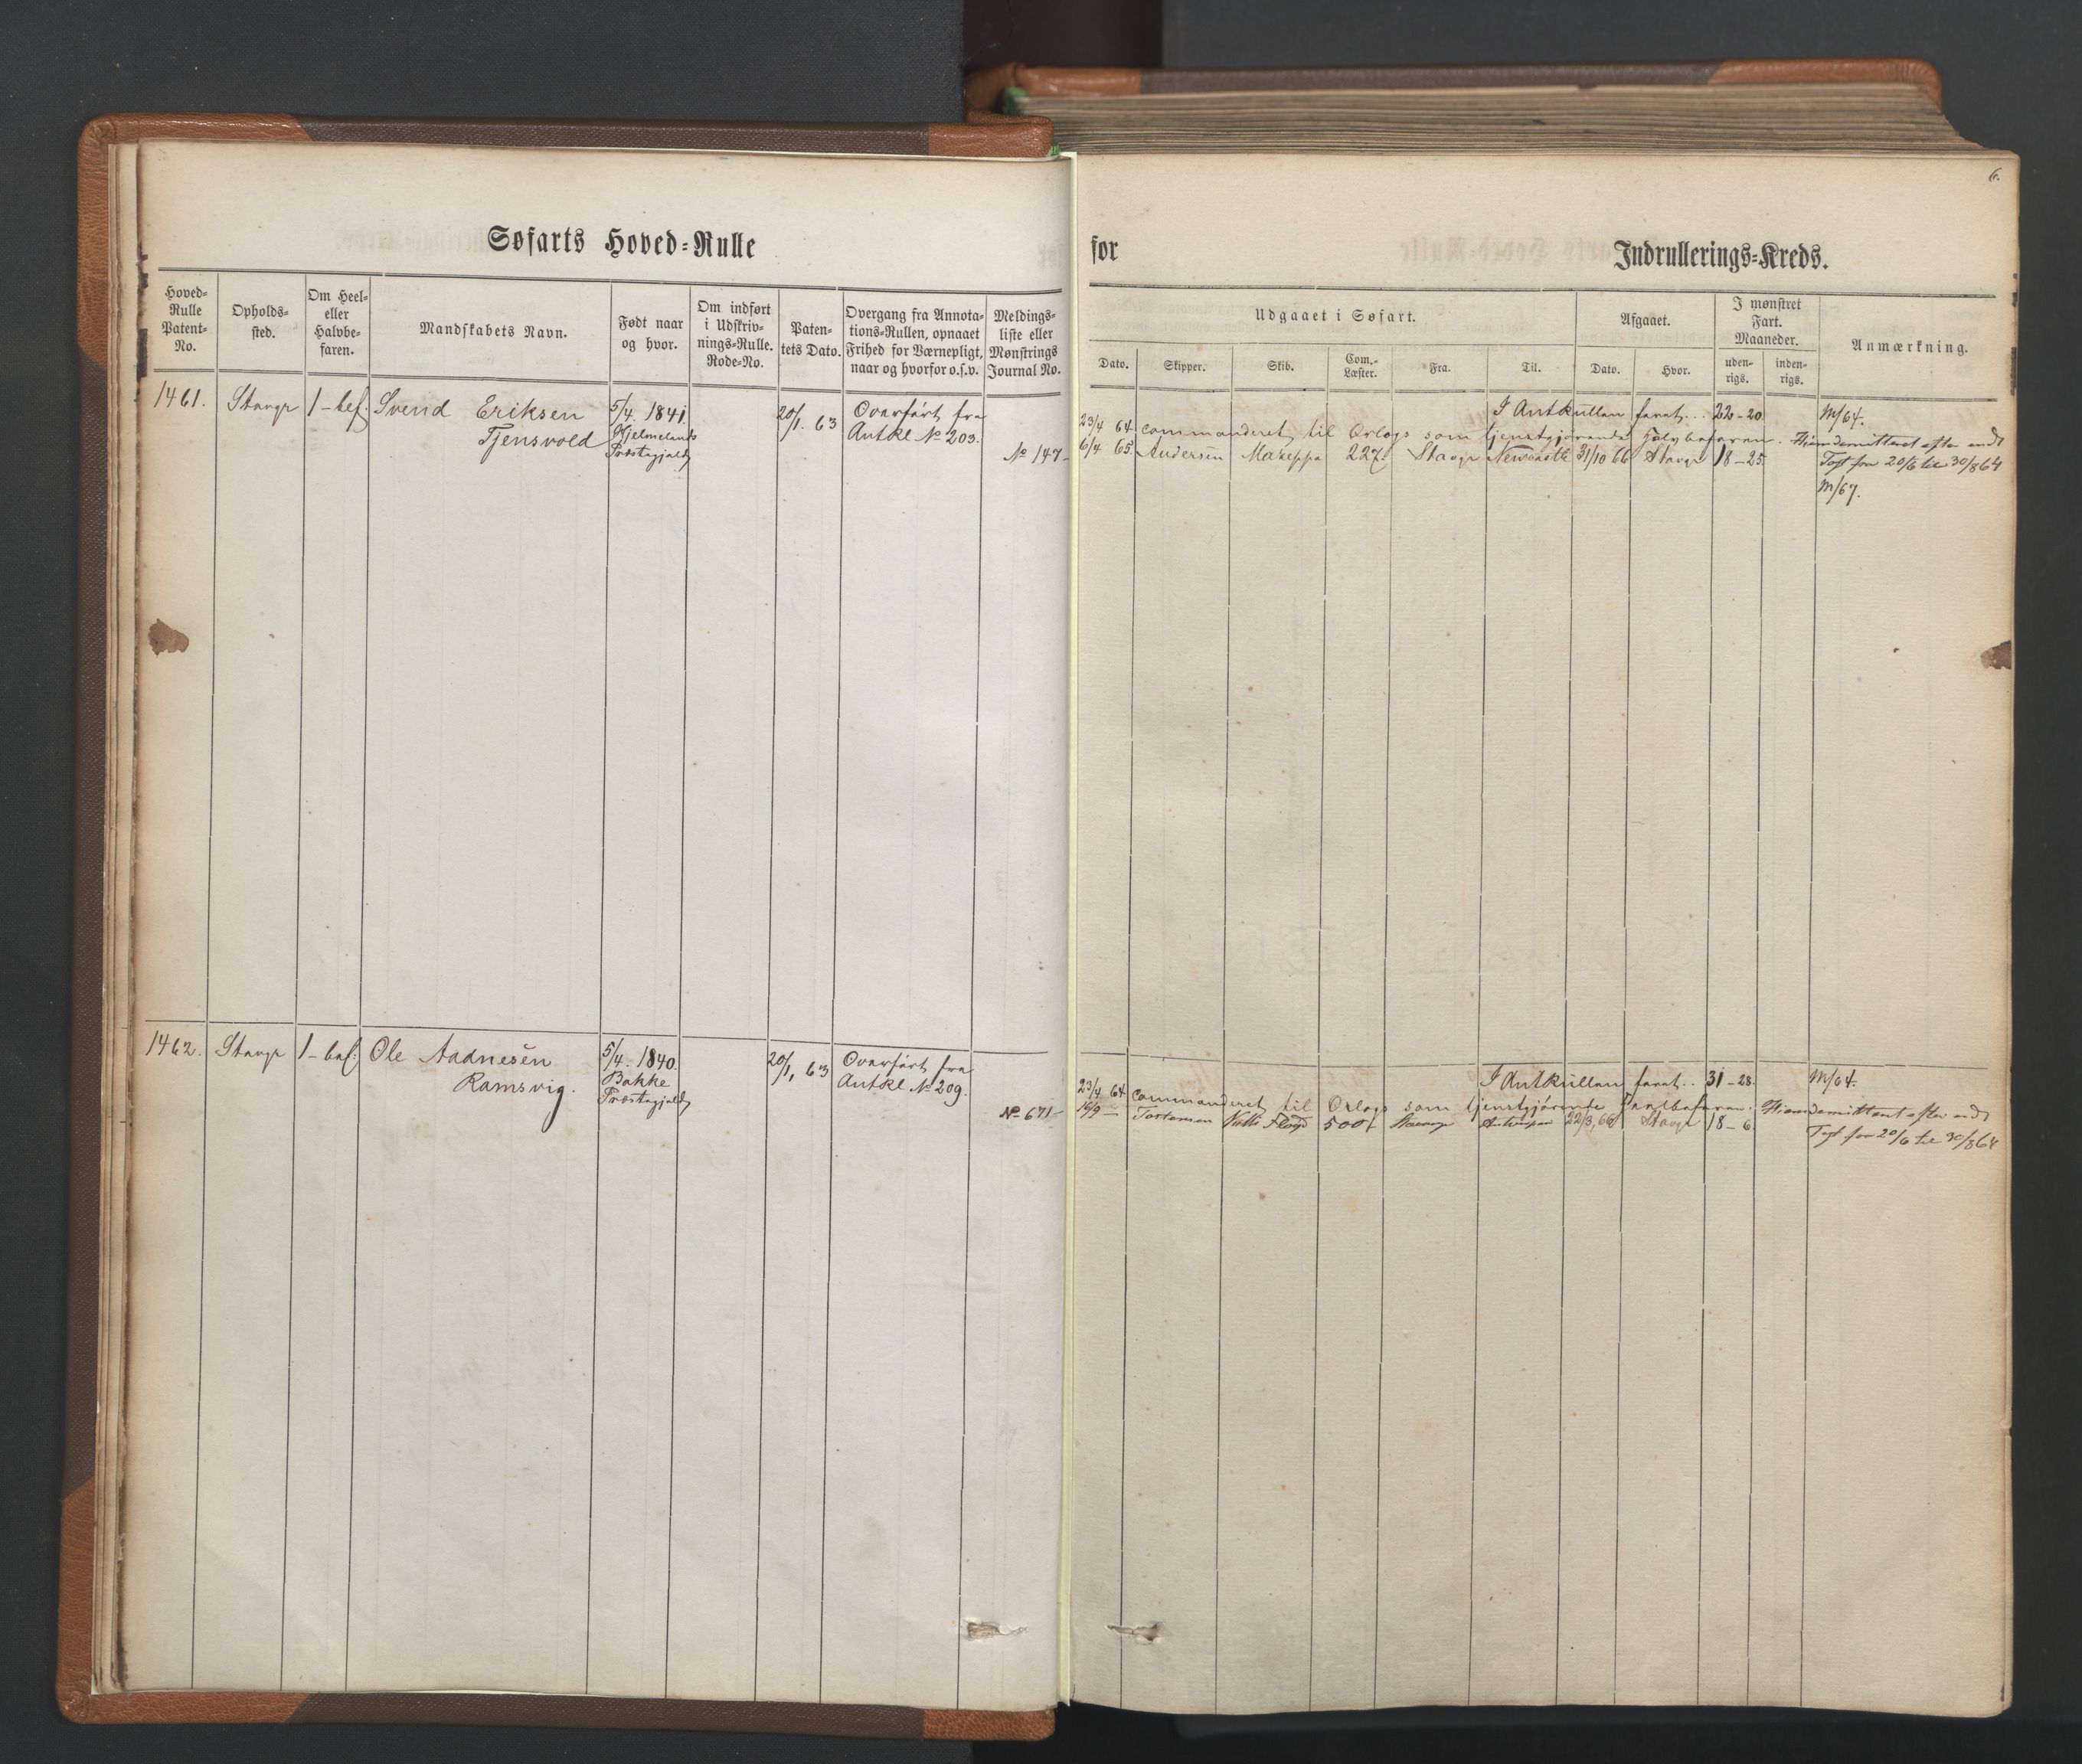 6.
Søfarts Hoved-Rulle
for
Indrullerings-Kreds.
Hoved-Rulle Patent-No.
Opholds-sted.
Om Heel- eller Halvbe-faren.
Mandskabets Navn.
Født naar og hvor.
Om indført i Udskriv-nings-Rulle. Rode-No.
Paten-tets Dato.
Overgang fra Annota-tions-Rullen, opnaaet Frihed for Værnepligt, naar og hvorfor o.s.v.
Meldings-liste eller Mønstrings Journal No.
Udgaaet i Søfart.
Afgaaet.
I mønstret Fart. Maaneder.
Anmærkning.
Dato.
Skipper.
Skib.
Com.-Læster.
Fra.
Til.
Dato.
Hvor.
uden-rigs.
inden-rigs.
1461.
Stavgr
1-bef.
Svend Eriksen
Tjensvold
5/4. 1841
Hjelmelands
Præstegjeld
20/1. 63
Overført fra
Antkl No 203.
No 147-
I Antkullen faret... 22-20
M/64.
23/4 64. commanderet til Orlogs som tjenstgjørende Halvbefaren. Hjemdemitteret efter endt
6/4 65. Andersen Mazeppa 227 Stavgr Newcastle 31/10 66 Stavgr 18-25.
Togt fra 20/6 til 30/8 64
M/67.
1462.
Stavgr
1-bef:
Ole Aadnesen
Ramsvig.
5/4. 1840.
Bakke
Præstegjeld
20/1, 63
Overført fra
Antkl No 209.
No 671-
I Antkullen faret.. 31-28.
M/64.
23/4 64 commanderet til Orlogs som tjenstgjørende Hjemdemitteret efter endt
16/9 - 500 Stavgr Antwerpen 22/3, 66 Stavgr 18-6
Togt fra 20/6 til 30/8 64